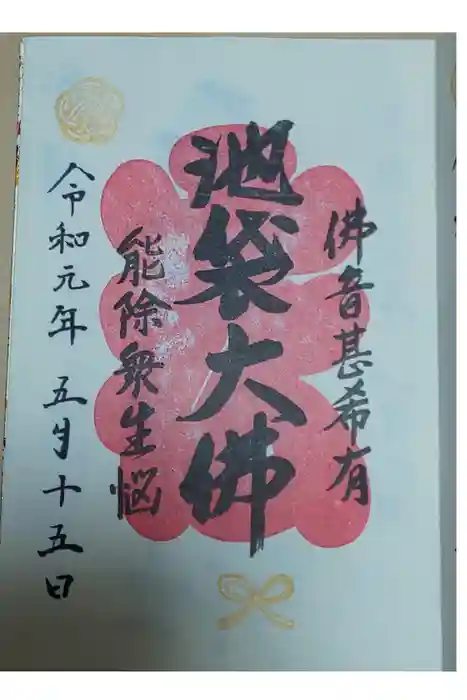 佛音甚希有
池袋大佛
能除衆生悩
令和元年 五月十五日